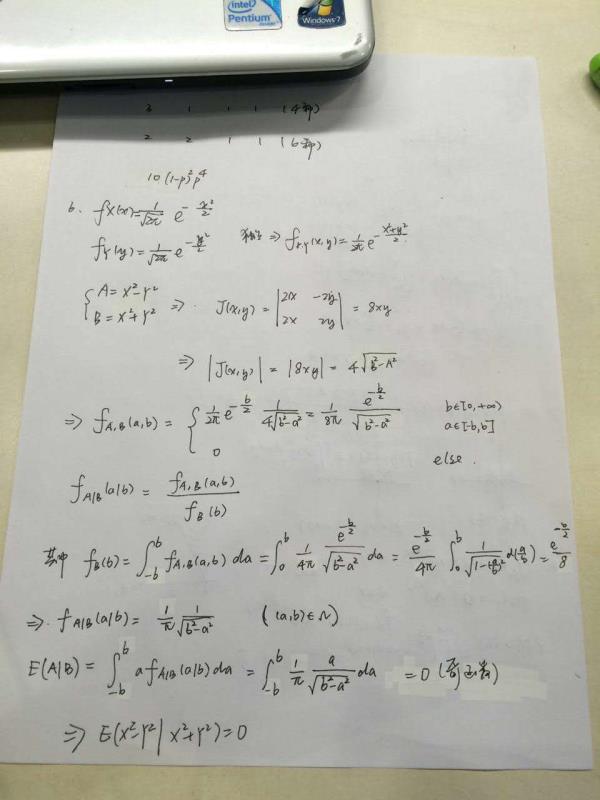 intel
Pentium
Windows 7
3 1 1 1 (4种)
2 2 1 1 (6种)
10(1-p)²p⁴
6. fX(x)=1/√2π e^(-x²/2)
fY(y)=1/√2π e^(-y²/2) 独立 ⇒ fX,Y(x,y)=1/2π e^(-(x²+y²)/2)
{A=X²-Y² B=X²+Y² ⇒ J(x,y)=|2x -2y; 2x 2y|=8xy
⇒ |J(x,y)|=|8xy|=4√(b²-a²)
⇒ fA,B(a,b)={1/2π e^(-b/2) 1/(4√(b²-a²))=1/8π e^(-b/2)/√(b²-a²) b∈[0,+∞) a∈[-b,b]
0 else.
fA|B(a|b)=fA,B(a,b)/fB(b)
其中 fB(b)=∫_{-b}^{b} fA,B(a,b)da=∫_0^b 1/4π e^(-b/2)/√(b²-a²) da=e^(-b/2)/4π ∫_0^b 1/√(1-(a/b)²) d(a/b)=e^(-b/2)/8
⇒. fA|B(a|b)=1/π 1/√(b²-a²) ((a,b)∈Ω)
E(A|B)=∫_{-b}^{b} a fA|B(a|b)da=∫_{-b}^{b} 1/π a/√(b²-a²) da =0 (奇函数)
⇒ E(X²-Y²|X²+Y²)=0